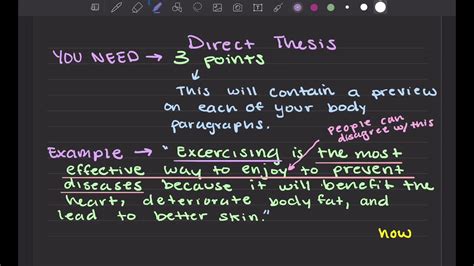 Direct Thesis
YOU NEED → 3 points
This will contain a preview
on each of your body
paragraphs.
people can
disagree w/ this
Example → "Excercising is the most
effective way to enjoy to prevent
diseases because it will benefit the
heart, deteriorate body fat, and
lead to better skin."
now